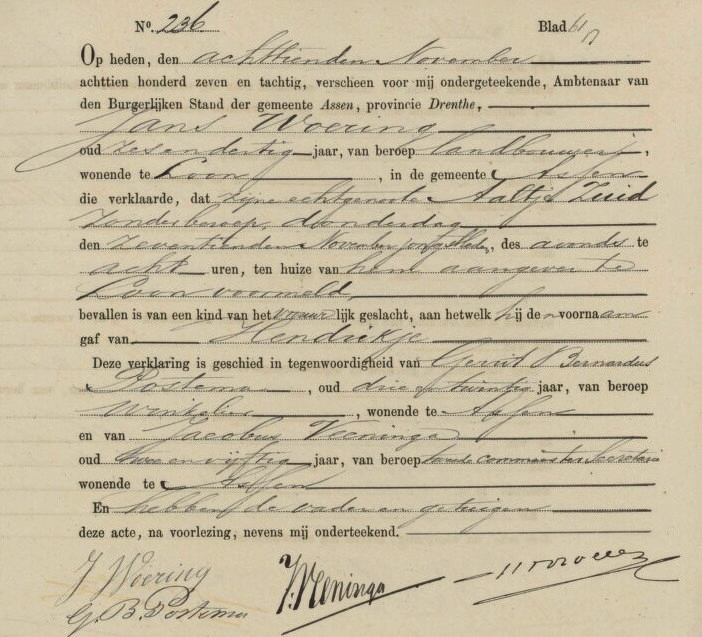 No. 236. Blad 61
Op heden, den achttienden November
achttien honderd zeven en tachtig, verscheen voor mij ondergeteekende, Ambtenaar van
den Burgerlijken Stand der gemeente Assen, provincie Drenthe,
Jans Woering
oud zesendertig jaar, van beroep landbouwer,
wonende te Loon, in de gemeente Assen
die verklaarde, dat zijne echtgenoote Aaltje Zuid
zonder beroep, donderdag
den zeventienden November jongstleden, des avonds te
acht uren, ten huize van hem aangever te
Loon voormeld,
bevallen is van een kind van het vrouwlijk geslacht, aan hetwelk hij den voornaam
gaf van Hendrikje
Deze verklaring is geschied in tegenwoordigheid van Gerrit Bernardus
Postema, oud drie en twintig jaar, van beroep
winkelier, wonende te Assen
en van Jacobus Veeninga
oud twee en vijftig jaar, van beroep commies ter Secretarie
wonende te Assen
En hebben de vader en getuigen
deze acte, na voorlezing, nevens mij onderteekend.
J Woering
G. B. Postema
J. Veninga